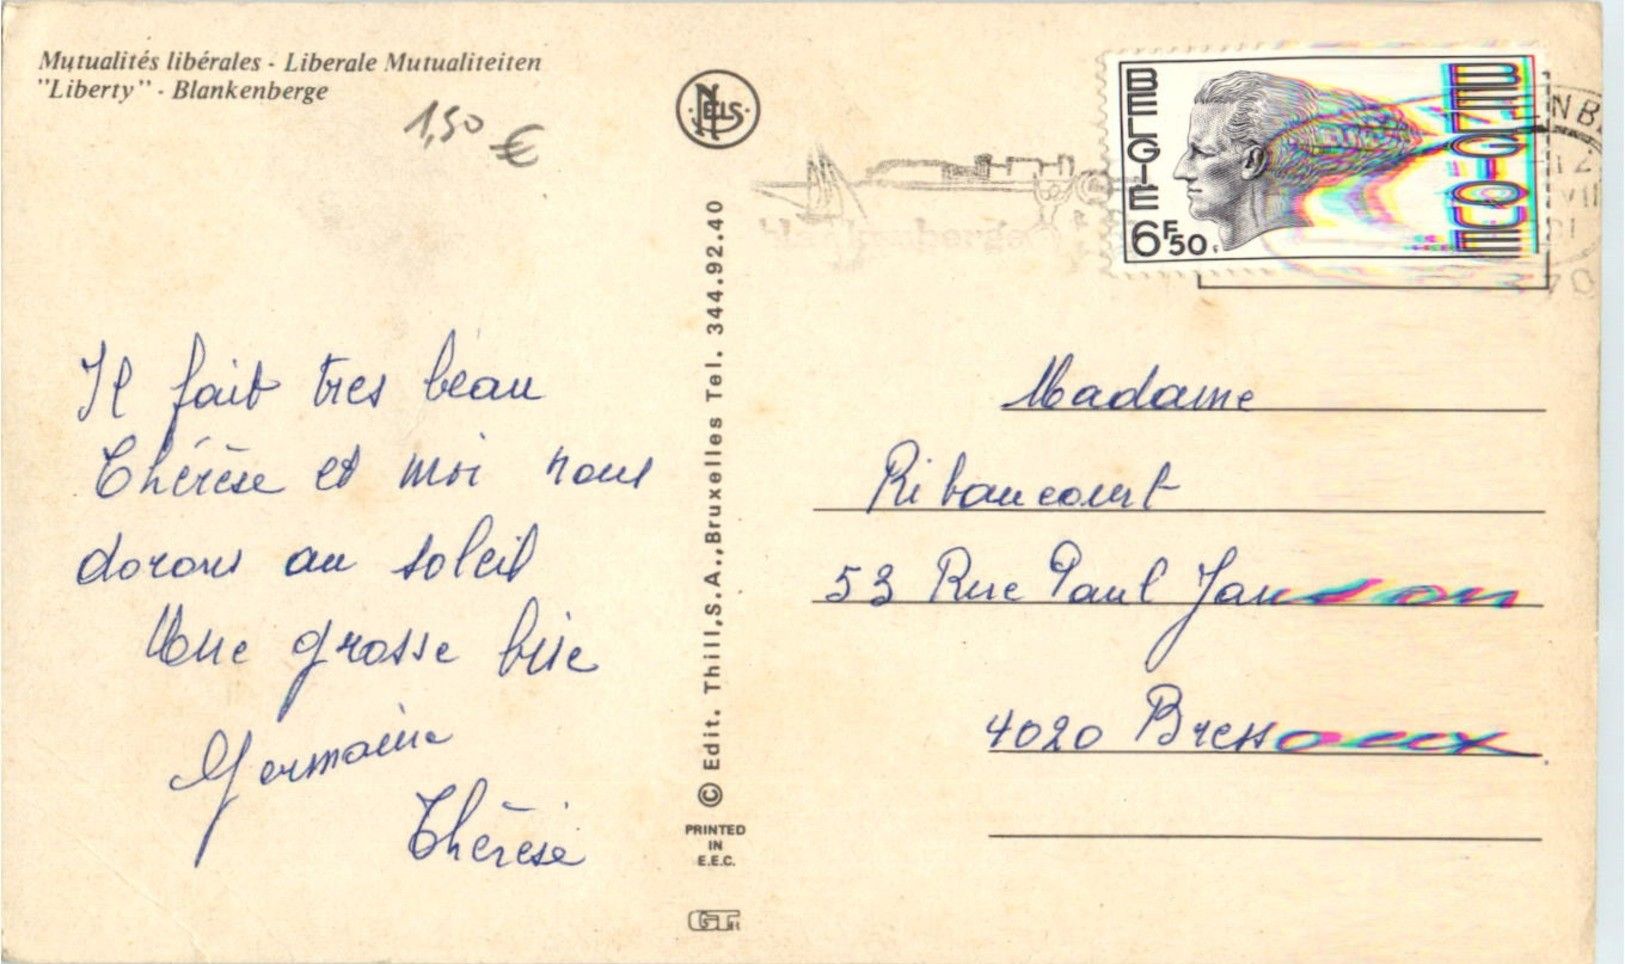 Mutualités libérales - Liberale Mutualiteiten
"Liberty" - Blankenberge
1,50 €
NELS
BELGIE
BELGIQUE
6F50
Il fait tres beau
Thérèse et moi nous
dorons au soleil
Une grosse bise
Germaine
Thérèse
© Edit. Thill,S.A.,Bruxelles Tel. 344.92.40
PRINTED
IN
E.E.C.
Madame
Ribaucourt
53 Rue Paul Janson
4020 Bressoux